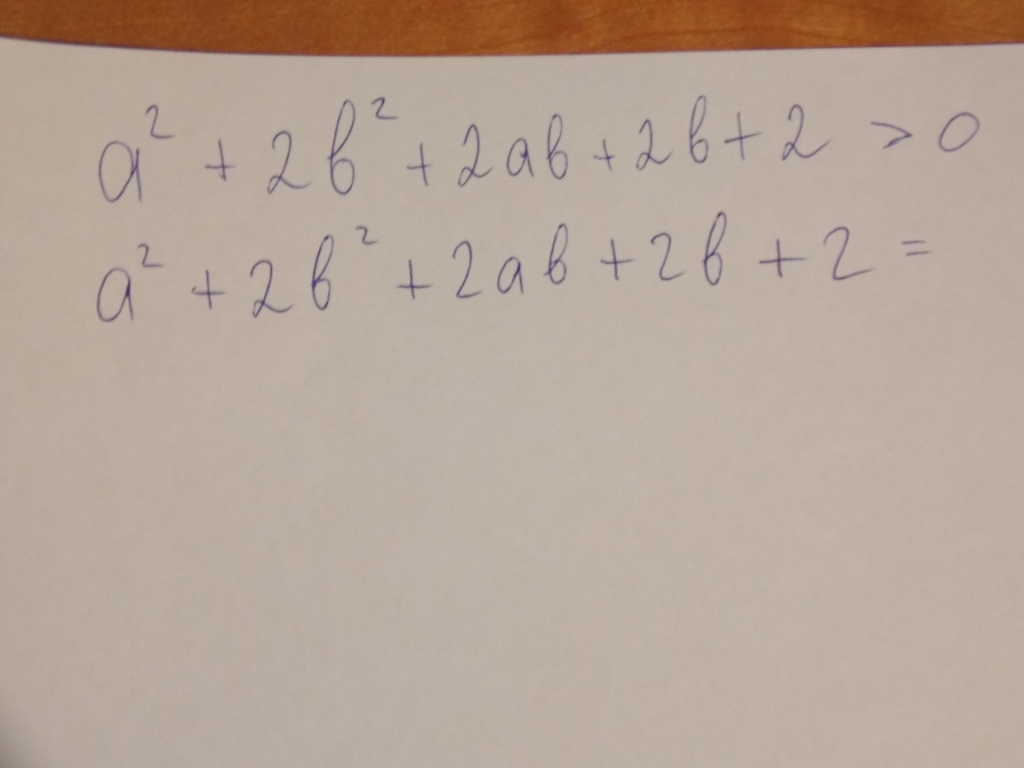 a² + 2b² + 2ab + 2b + 2 > 0
a² + 2b² + 2ab + 2b + 2 =